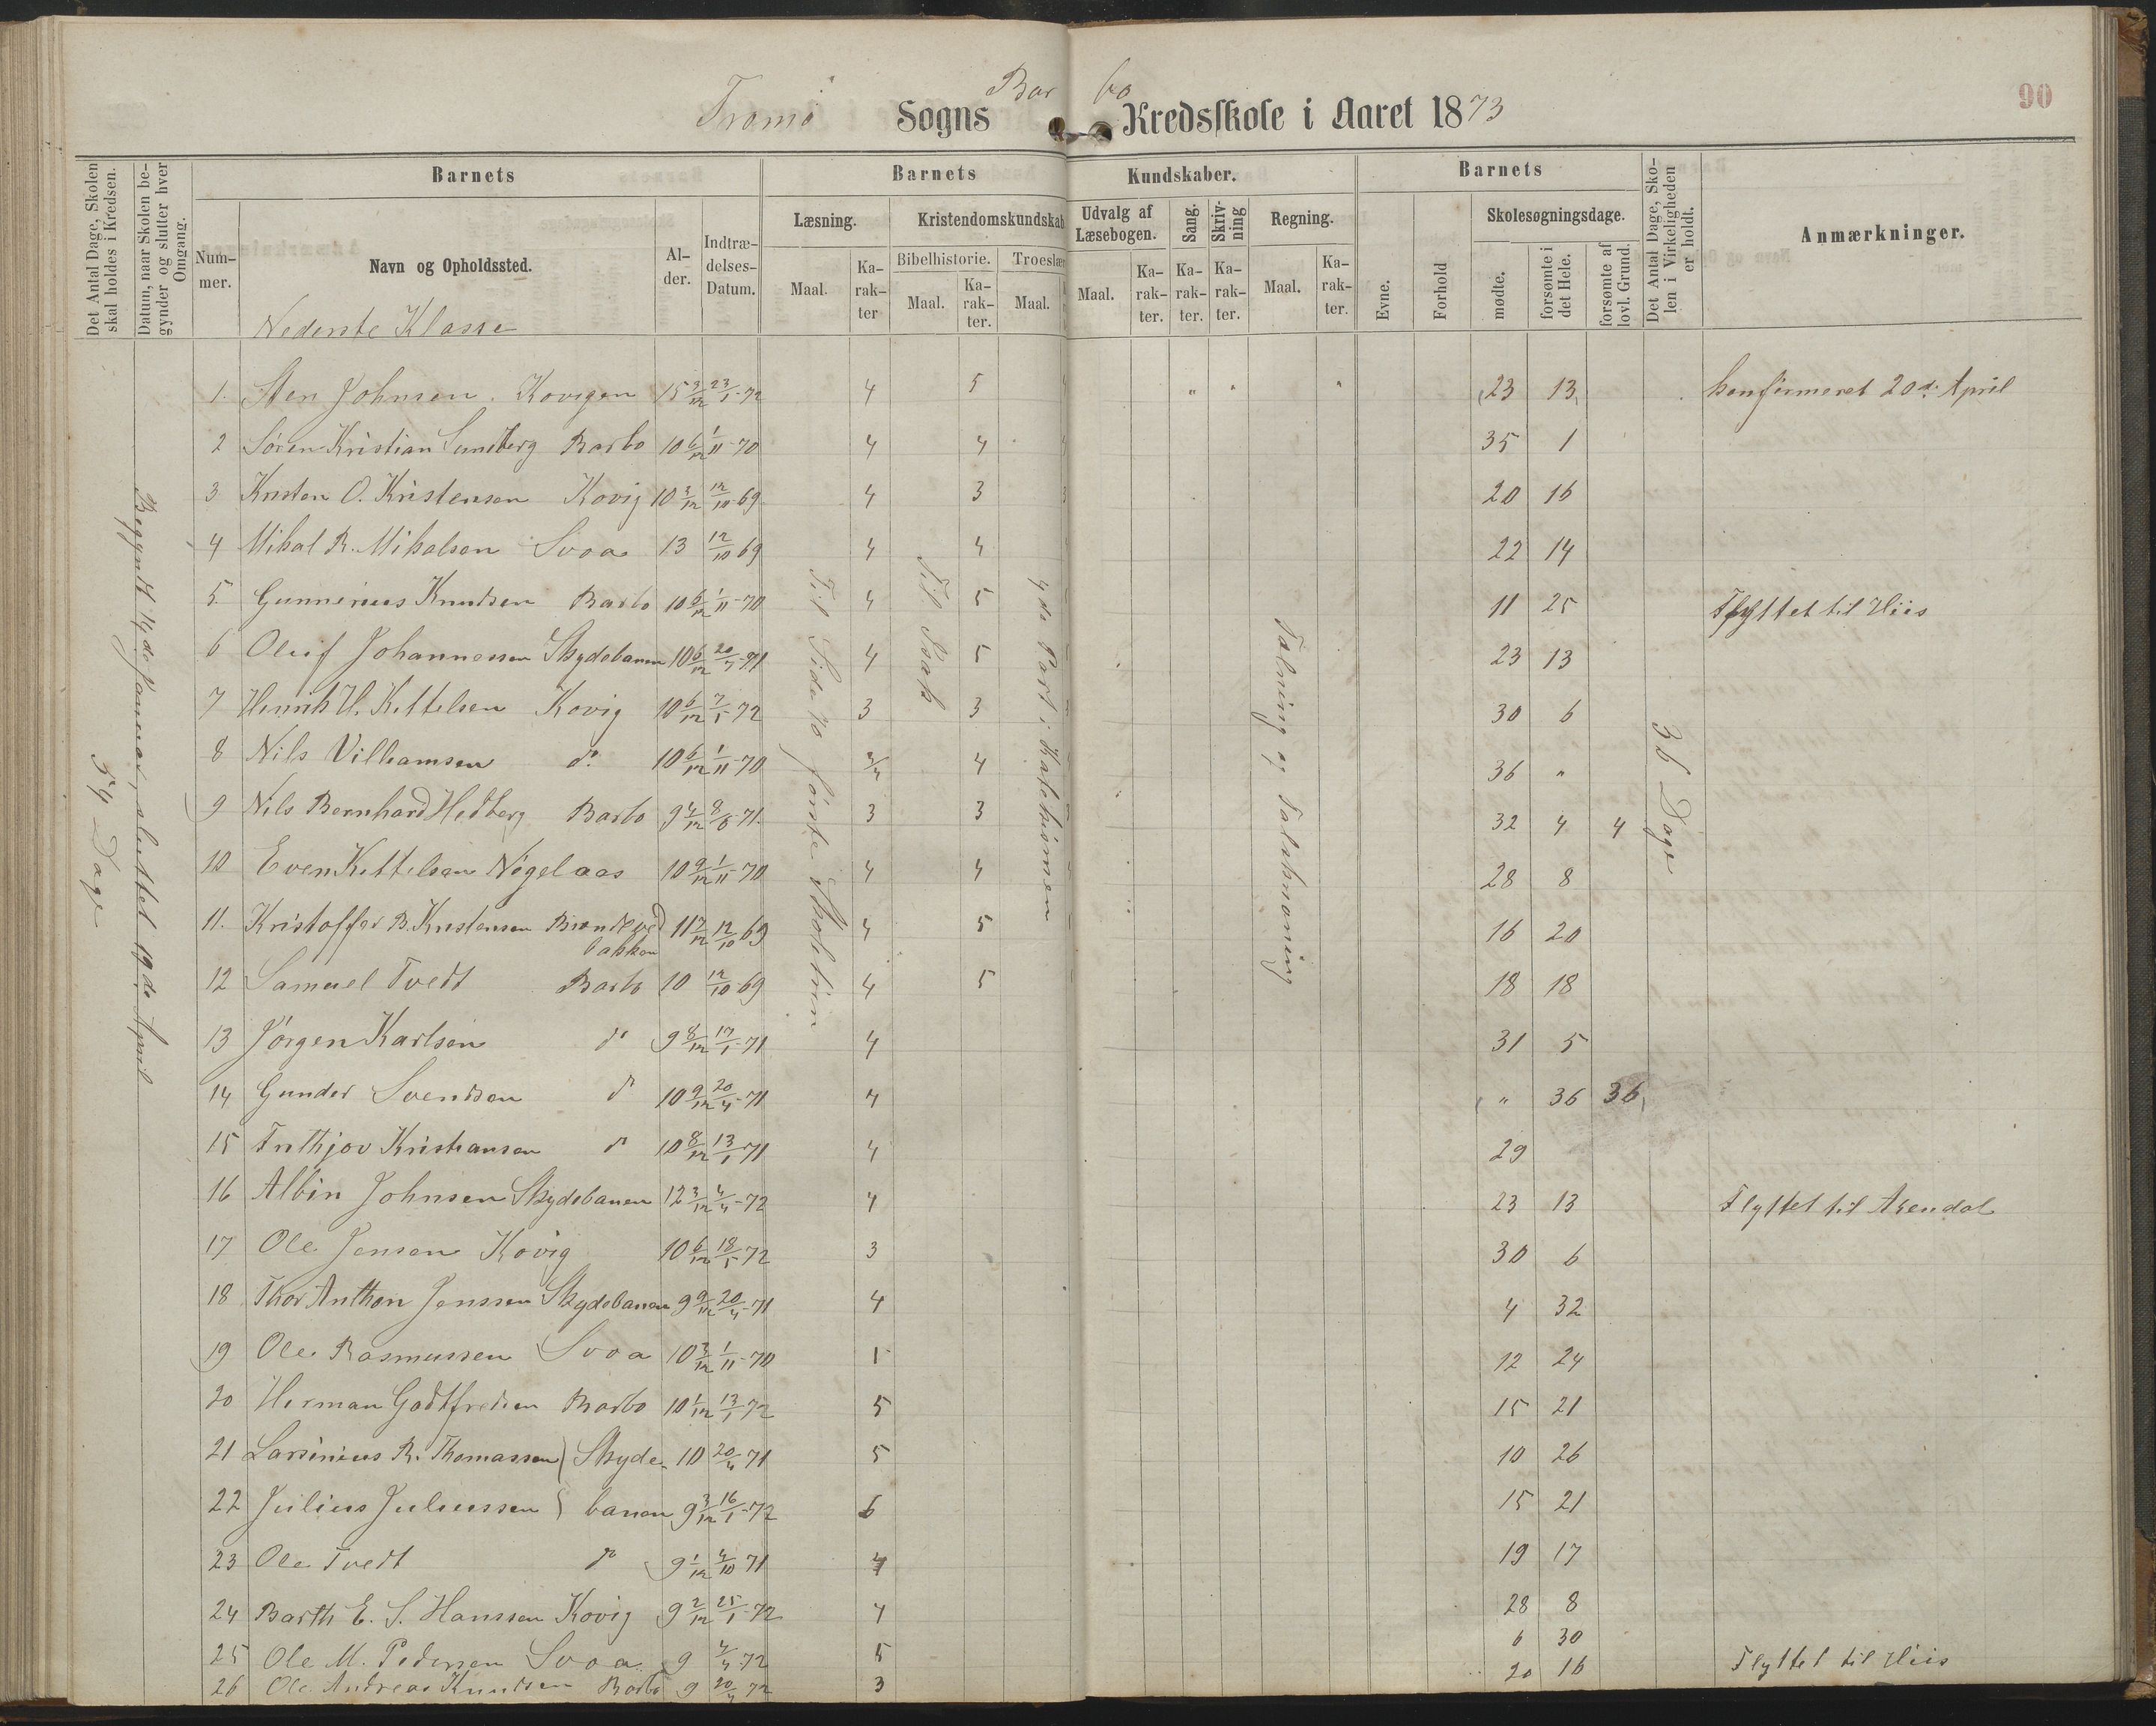 90
Tromö Sogns Barbo Kredsskole i Aaret 1873
Det Antal Dage, Skolen skal holdes i Kredsen.
Datum, naar Skolen begynder og slutter hver Omgang.
Barnets
Barnets Kundskaber.
Barnets
Det Antal Dage, Skolen i Virkeligheden er holdt.
Anmærkninger.
Nummer.
Navn og Opholdssted.
Alder.
Indtrædelses-Datum.
Læsning.
Kristendomskundskab
Udvalg af Læsebogen.
Sang.
Skrivning
Regning.
Evne.
Forhold
Skolesøgningsdage.
Bibelhistorie.
Troeslær
Maal. Karakter
Maal. Karakter.
Maal.
Maal. Karakter.
Karakter.
Karakter.
Maal. Karakter.
mødte.
forsømte i det Hele.
forsømte af lovl. Grund.
Nederste Klasse
54 Dage
Begyndt 14de Januar, sluttet 19de April
Til Side 70 förste Skoletrin
Til Isak
4de Part i Katekismen
Talning og Talskrivning
36 Dage
1. Sten Johnsen. Kovigen 15 3/12 23/1-72 4 5 " " " 23 13 konfirmeret 20de April
2 Sören Kristian Sundberg Barbo 10 6/12 1/11-70 4 4 35 1
3 Kristen O. Kristensen Kovig 10 3/12 12/10 69 4 3 20 16
4 Mikal R. Mikalsen Svoa 13 12/10 69 4 4 22 14
5. Gunnerius Knudsen Barbo 10 6/12 1/11-70 4 5 11 25 Flyttet til Hiis
6 Oluf Johannessen Skydebanen 10 6/12 20/4-71 4 5 23 13
7 Henrik H. Kittelsen Kovig 10 6/12 7/5-72 3 3 30 6
8 Nils Villiamsen do 10 6/12 1/11-70 4 36 "
9 Nils Bernhard Hedberg Barbo 9 4/12 71. 3 3 32 4 4
10 Even Kittelsen Nögelaas 10 9/12 1/11-70 4 4 28 8
11. Kristoffer B. Kristensen bakken 11 12/10 69 4 5 16 20
12 Samuel Tvedt Barbo 10 12/10-69 4 5 18 18
13 Jörgen Karlsen do 9 8/12 17/1-71 4 31 5
14 Gunder Svendsen do 10 9/12 20/4-71 4 " 36 36
15 Frithjov Kristiansen do 10 8/12 13/1-71 4 29
16 Albin Johnsen Skydebanen 12 3/12 4/4-72 4 23 13 Flyttet til Arendal
17 Ole Jensen Kovig 10 6/12 18/5-72 3 30 6
18 Thor Anthon Jenssen Skydebanen 9 9/12 20/4-71 4 4 32
19 Ole Rasmussen Svoa 10 3/12 1/11-70 1 12 24
20 Herman Godtfredsen Barbo 10 1/12 13/1-72 5 15 21
21 Larsinius R. Thomassen } Skyde- 10 20/4 71 5 10 26
22 Julius Juliussen } banen 9 3/12 16/1-72 6 15 21
23 Ole Tvedt do 9 1/12 4/10 71 4 19 17
24 Barth E. S. Hanssen Kovig 9 2/12 25/1-72 4 28 8
25 Ole M. Pedersen Svoa 9 4/4-72 5 6 30
26 Ole Andreas Knudsen Barbo 9 20/4 72 3 20 16 Flyttet til Hiis